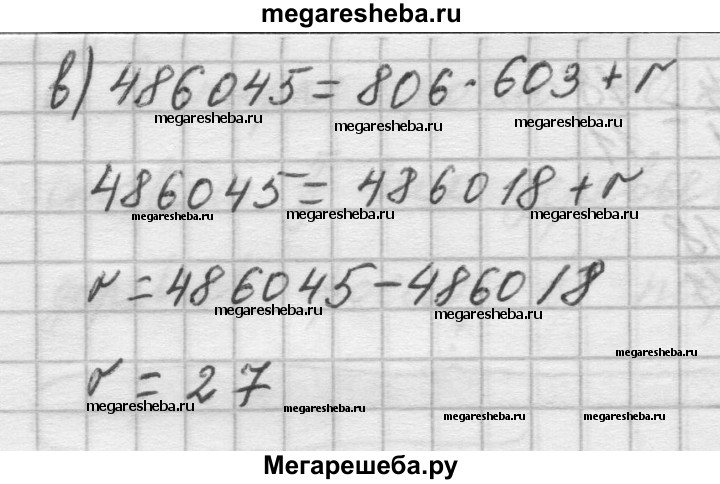 megaresheba.ru
в) 486045 = 806 · 603 + r
megaresheba.ru megaresheba.ru megaresheba.ru
486045 = 486018 + r
megaresheba.ru megaresheba.ru megaresheba.ru
r = 486045 - 486018
megaresheba.ru megaresheba.ru
megaresheba.ru
r = 27
megaresheba.ru megaresheba.ru megaresheba.ru
Мегарешеба.ру